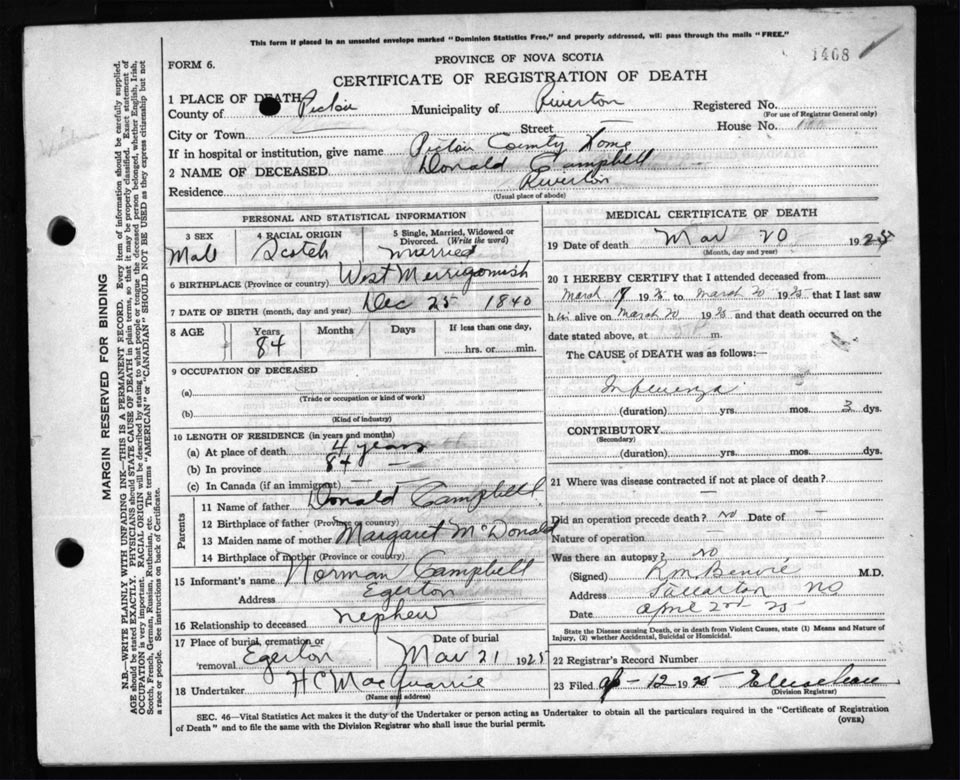 This form if placed in an unsealed envelope marked "Dominion Statistics Free," and properly addressed, will pass through the mails "FREE."
1468
FORM 6.
PROVINCE OF NOVA SCOTIA
CERTIFICATE OF REGISTRATION OF DEATH
1 PLACE OF DEATH
County of Pictou Municipality of Riverton Registered No.
(For use of Registrar General only)
City or Town Street — House No.
If in hospital or institution, give name Pictou County Home
2 NAME OF DECEASED Donald Campbell
Residence Riverton
(Usual place of abode)
PERSONAL AND STATISTICAL INFORMATION
3 SEX Male
4 RACIAL ORIGIN Scotch
5 Single, Married, Widowed or Divorced. (Write the word) Married
6 BIRTHPLACE (Province or country) West Merrigomish
7 DATE OF BIRTH (month, day and year) Dec 25 1840
8 AGE Years 84 Months Days If less than one day, ....hrs. or....min.
9 OCCUPATION OF DECEASED
(a)
(Trade or occupation or kind of work)
(b)
(Kind of industry)
10 LENGTH OF RESIDENCE (in years and months)
(a) At place of death 4 years
(b) In province 84 —
(c) In Canada (if an immigrant) —
Parents
11 Name of father Donald Campbell
12 Birthplace of father (Province or country)
13 Maiden name of mother Margaret McDonald
14 Birthplace of mother (Province or country)
15 Informant's name Norman Campbell
Address Egerton
16 Relationship to deceased nephew
17 Place of burial, cremation or removal Egerton
Date of burial Mar 21 1925
18 Undertaker H C MacQuarrie
(Name and address)
MEDICAL CERTIFICATE OF DEATH
19 Date of death Mar 20 1925
(Month, day and year)
20 I HEREBY CERTIFY that I attended deceased from
March 17 1925 to March 20 1925 that I last saw
him alive on March 20 1925 and that death occurred on the
date stated above, at m.
The CAUSE of DEATH was as follows:—
Influenza
(duration) yrs. mos. 3 dys.
CONTRIBUTORY
(Secondary)
(duration) yrs. mos. dys.
21 Where was disease contracted if not at place of death?
Did an operation precede death? No Date of —
Nature of operation —
Was there an autopay? No
(Signed) R M Benvie M.D.
Address Stellarton NS
Date April 2nd 25
State the Disease causing Death, or in death from Violent Causes, state (1) Means and Nature of
Injury, (2) whether Accidental, Suicidal or Homicidal.
22 Registrar's Record Number
23 Filed Ap - 12 1925
(Division Registrar)
SEC. 46—Vital Statistics Act makes it the duty of the Undertaker or person acting as Undertaker to obtain all the particulars required in the "Certificate of Registration
of Death" and to file the same with the Division Registrar who shall issue the burial permit.
(OVER)
MARGIN RESERVED FOR BINDING
N.B.—WRITE PLAINLY WITH UNFADING INK—THIS IS A PERMANENT RECORD. Every item of information should be carefully supplied.
AGE should be stated EXACTLY. PHYSICIANS should STATE CAUSE OF DEATH in plain terms, so that it may be properly classified. Exact statement of
OCCUPATION is very important. RACIAL ORIGIN will be described by stating to what people or tongue the deceased person belonged, whether English, Irish,
Scotch, French, German, Russian, Ruthenian, etc. The terms "AMERICAN" or "CANADIAN" SHOULD NOT BE USED as they express citizenship but not
a race or people. See instructions on back of Certificate.